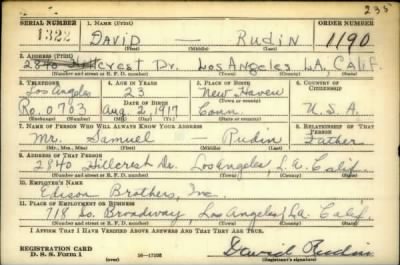 235
SERIAL NUMBER 1. NAME (Print) ORDER NUMBER
1322 DAVID — RUDIN 1190
(First) (Middle) (Last)
2. ADDRESS (Print)
2840 Hillcrest Dr. Los Angeles L.A. Calif.
(Number and street or R. F. D. number) (Town) (County) (State)
3. TELEPHONE 4. AGE IN YEARS 5. PLACE OF BIRTH 6. COUNTRY OF CITIZENSHIP
Los Angeles 23 New Haven
DATE OF BIRTH (Town or county)
Ro. 0783 Aug. 2, 1917 Conn U.S.A.
(Exchange) (Number) (Mo.) (Day) (Yr.) (State or country)
7. NAME OF PERSON WHO WILL ALWAYS KNOW YOUR ADDRESS 8. RELATIONSHIP OF THAT PERSON
Mr. Samuel Rudin Father
(Mr., Mrs., Miss) (First) (Middle) (Last)
9. ADDRESS OF THAT PERSON
2840 Hillcrest Dr. Los Angeles, L.A. Calif.
(Number and street or R. F. D. number) (Town) (County) (State)
10. EMPLOYER'S NAME
Edison Brothers, Inc.
11. PLACE OF EMPLOYMENT OR BUSINESS
718 So. Broadway, Los Angeles, L.A. Calif.
(Number and street or R. F. D. number) (Town) (County) (State)
I AFFIRM THAT I HAVE VERIFIED ABOVE ANSWERS AND THAT THEY ARE TRUE.
REGISTRATION CARD
D. S. S. FORM 1 (over) 16—17105 David Rudin
(Registrant's signature)